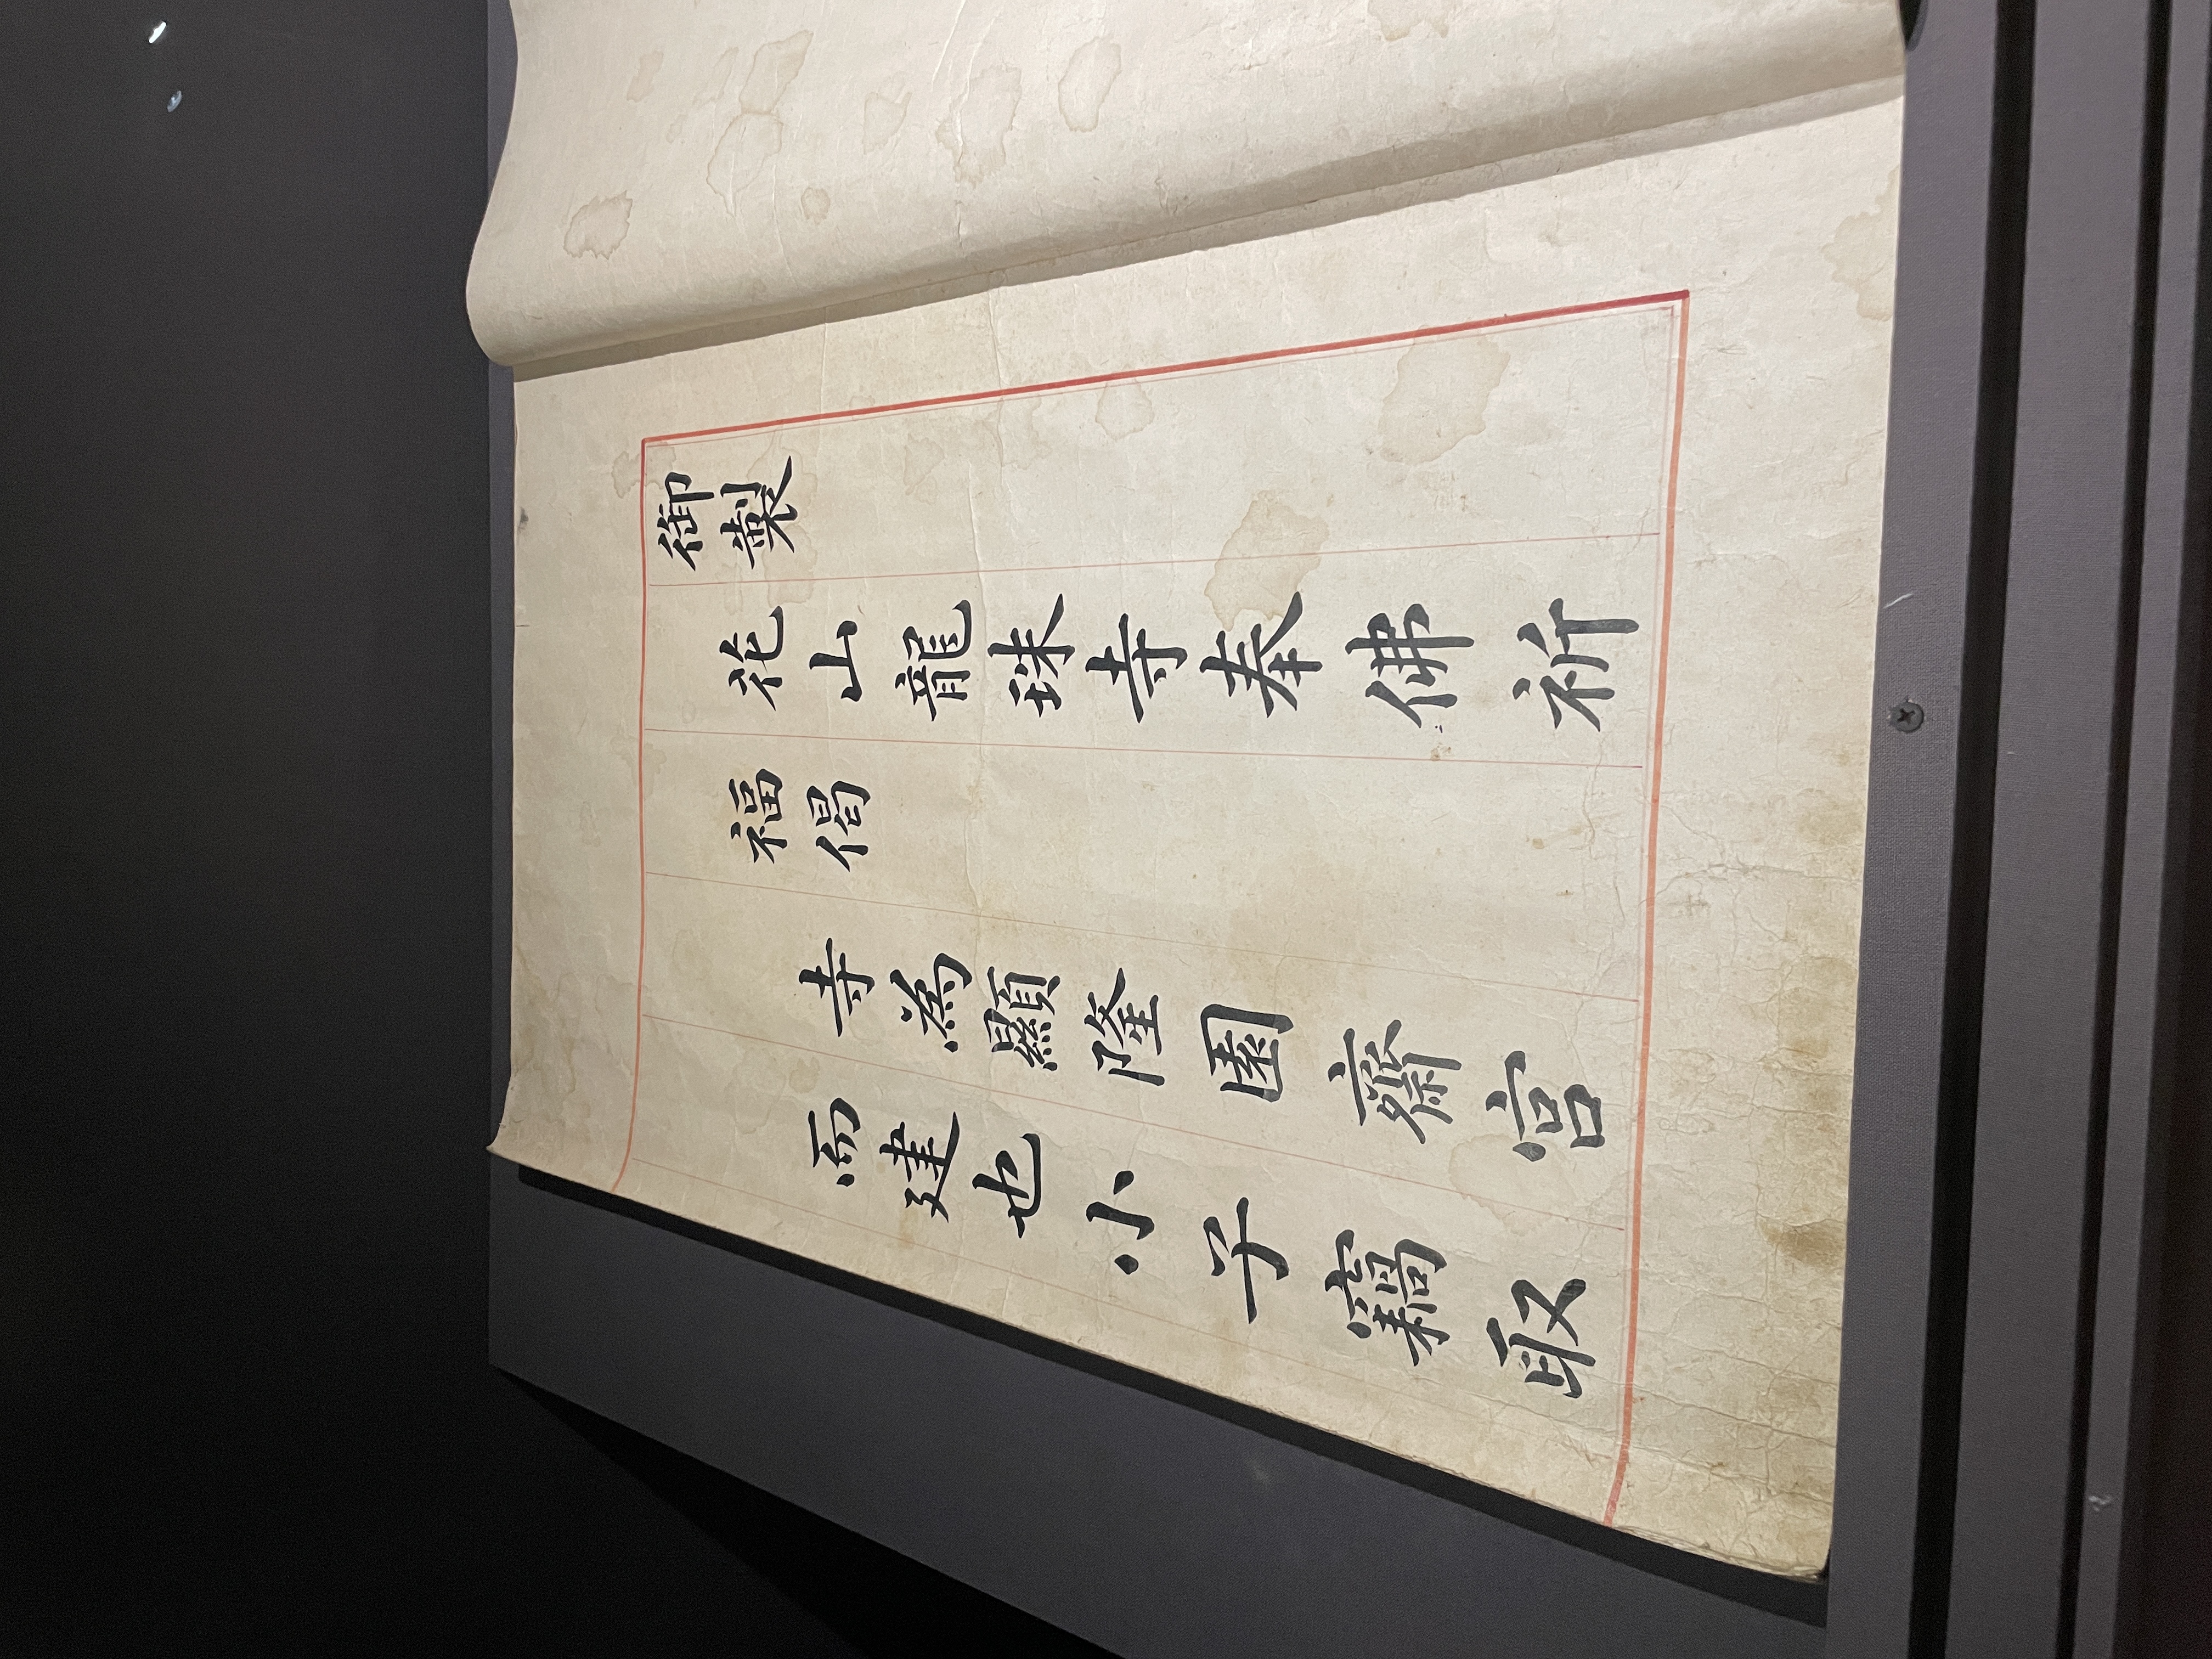 御製
花山龍珠寺奉佛祈
福偈
寺為顯隆園齋宮
而建也小子竊取